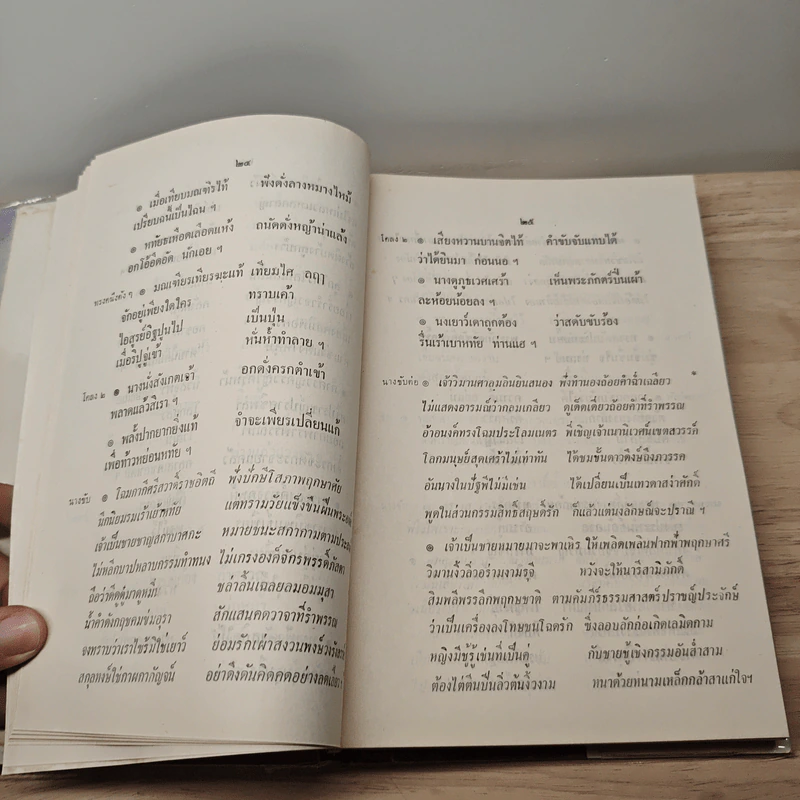 ๒๔
๏ เมื่อเทียบมณฑิรไท้ พึงดั่งลางหมางไหม้
เปรียบฉนี้เป็นไฉน ฯ
๏ หทัยธเหือดเลือดแห้ง ถนัดดั่งหญ้าน่าแล้ง
อกโอ้อึดอัด นักเอย ฯ
๏ มณเฑียรเทียรฆะแท้ เทียมไศ
จักอยู่เพียงใดใคร ทราบเค้า
ไอสูรย์อิฐปูนไป เป็นปุ่น
เมื่อริปูจู่เข้า หั่นห้ำทำลาย ฯ
โคลง ๒ ๏ นางนั่งสังเกตเจ้า อกดั่งครกตำเข้า
พลาดแล้วสิเรา ฯ
๏ พลั้งปากยากยิ่งแท้ จำจะเพียรเปลี่ยนแก้
เพื่อท้าวหย่อนหทัย ฯ
นางขับ ๏ โฉมกากีศรีสวาดิ์ราชอิตถี
นึกนิยมรมเร้าเย้าหทัย แต่ทรามวัยแข็งขืนฝืน
เจ้าเป็นชายชาญสกาบาศกะ หมายชนะสกากามตาม
ไม่หลีกบาปหลาบกรรมทำทนง ไม่เกรงองค์จักรพรรดิ์
ถือว่าคิดคู่มาดูหมิ่น ขล่าลิ้นเฉลยลมอมมุสา
น้ำคำดังกฤชคมข่มอุรา สักแสนคดวาจาที่รำพรรณ
จงทราบว่าเราไซร้มิใช่เยาว์ ย่อมรักเผ่าสงวนพงษ์
สกุลหงษ์ใช่กาผกากัญจน์ อย่าดึงดันคิดคดอย่าง
๒๕
โคลง ๒ ๏ เสียงหวานบานจิตไท้ คำขับจับแทบได้
ว่าได้ยินมา ก่อนนอ ฯ
๏ นางดูภูธเวศเศร้า เห็นพระภักตร์ปั้นเผ้า
ละห้อยน้อยลง ฯ
๏ นงเยาว์เดาถูกต้อง ว่าสดับขับร้อง
รื่นเร้าเบาหทัย ท่านแฮ ฯ
นางขับต่อ ๏ เจ้าวิมานศาลมลินยินสนอง พึ่งทำนองถ้อยคำฉ่ำเฉลียว
ไม่แสดงอารมณ์ว่ากลมเกลียว ดูเด็ดเดี่ยวถ้อยคำที่รำพรรณ
อ้าอนงค์ทรงโฉมประโลมเนตร พี่เชิญเจ้าเนานิเวศน์เขตสวรรค์
โลกมนุษย์สุดเศร้าไม่เท่าทัน ได้ชมชั้นดาวดึงษ์ถึงภวรรค
อันนางในปัฐพีไม่มีเช่น ได้เปลี่ยนเป็นเทวดาสง่าศักดิ์
พูดในส่วนกรรมสิทธิ์สฤษดิ์รัก ก็แล้วแต่นงลักษณ์จะปราณี ฯ
๏ เจ้าเป็นชายหมายมาจะพาเหิร ให้เพลิดเพลินฟากฟ้าพฤกษาศรี
วิมานงิ้วลิ่วอร่ามงามรุจี หวังจะให้นารีสามิภักดิ์
สิมพลีพรรลึกพฤกษชาติ ตามคัมภีร์ธรรมศาสตร์ปราชญ์ประจักษ์
ว่าเป็นเครื่องลงโทษขนโฉดรัก ซึ่งลอบลักก่อเกิดเลมิดกาม
หญิงมีชู้รู้เช่นที่เป็นคู่ กับชายชู้เชิงกรรมอันส่ำสาม
ต้องไต่ตีนปีนลิ่วต้นงิ้วงาม หนาด้วยหนามเหล็กกล้าสาแก่ใจฯ